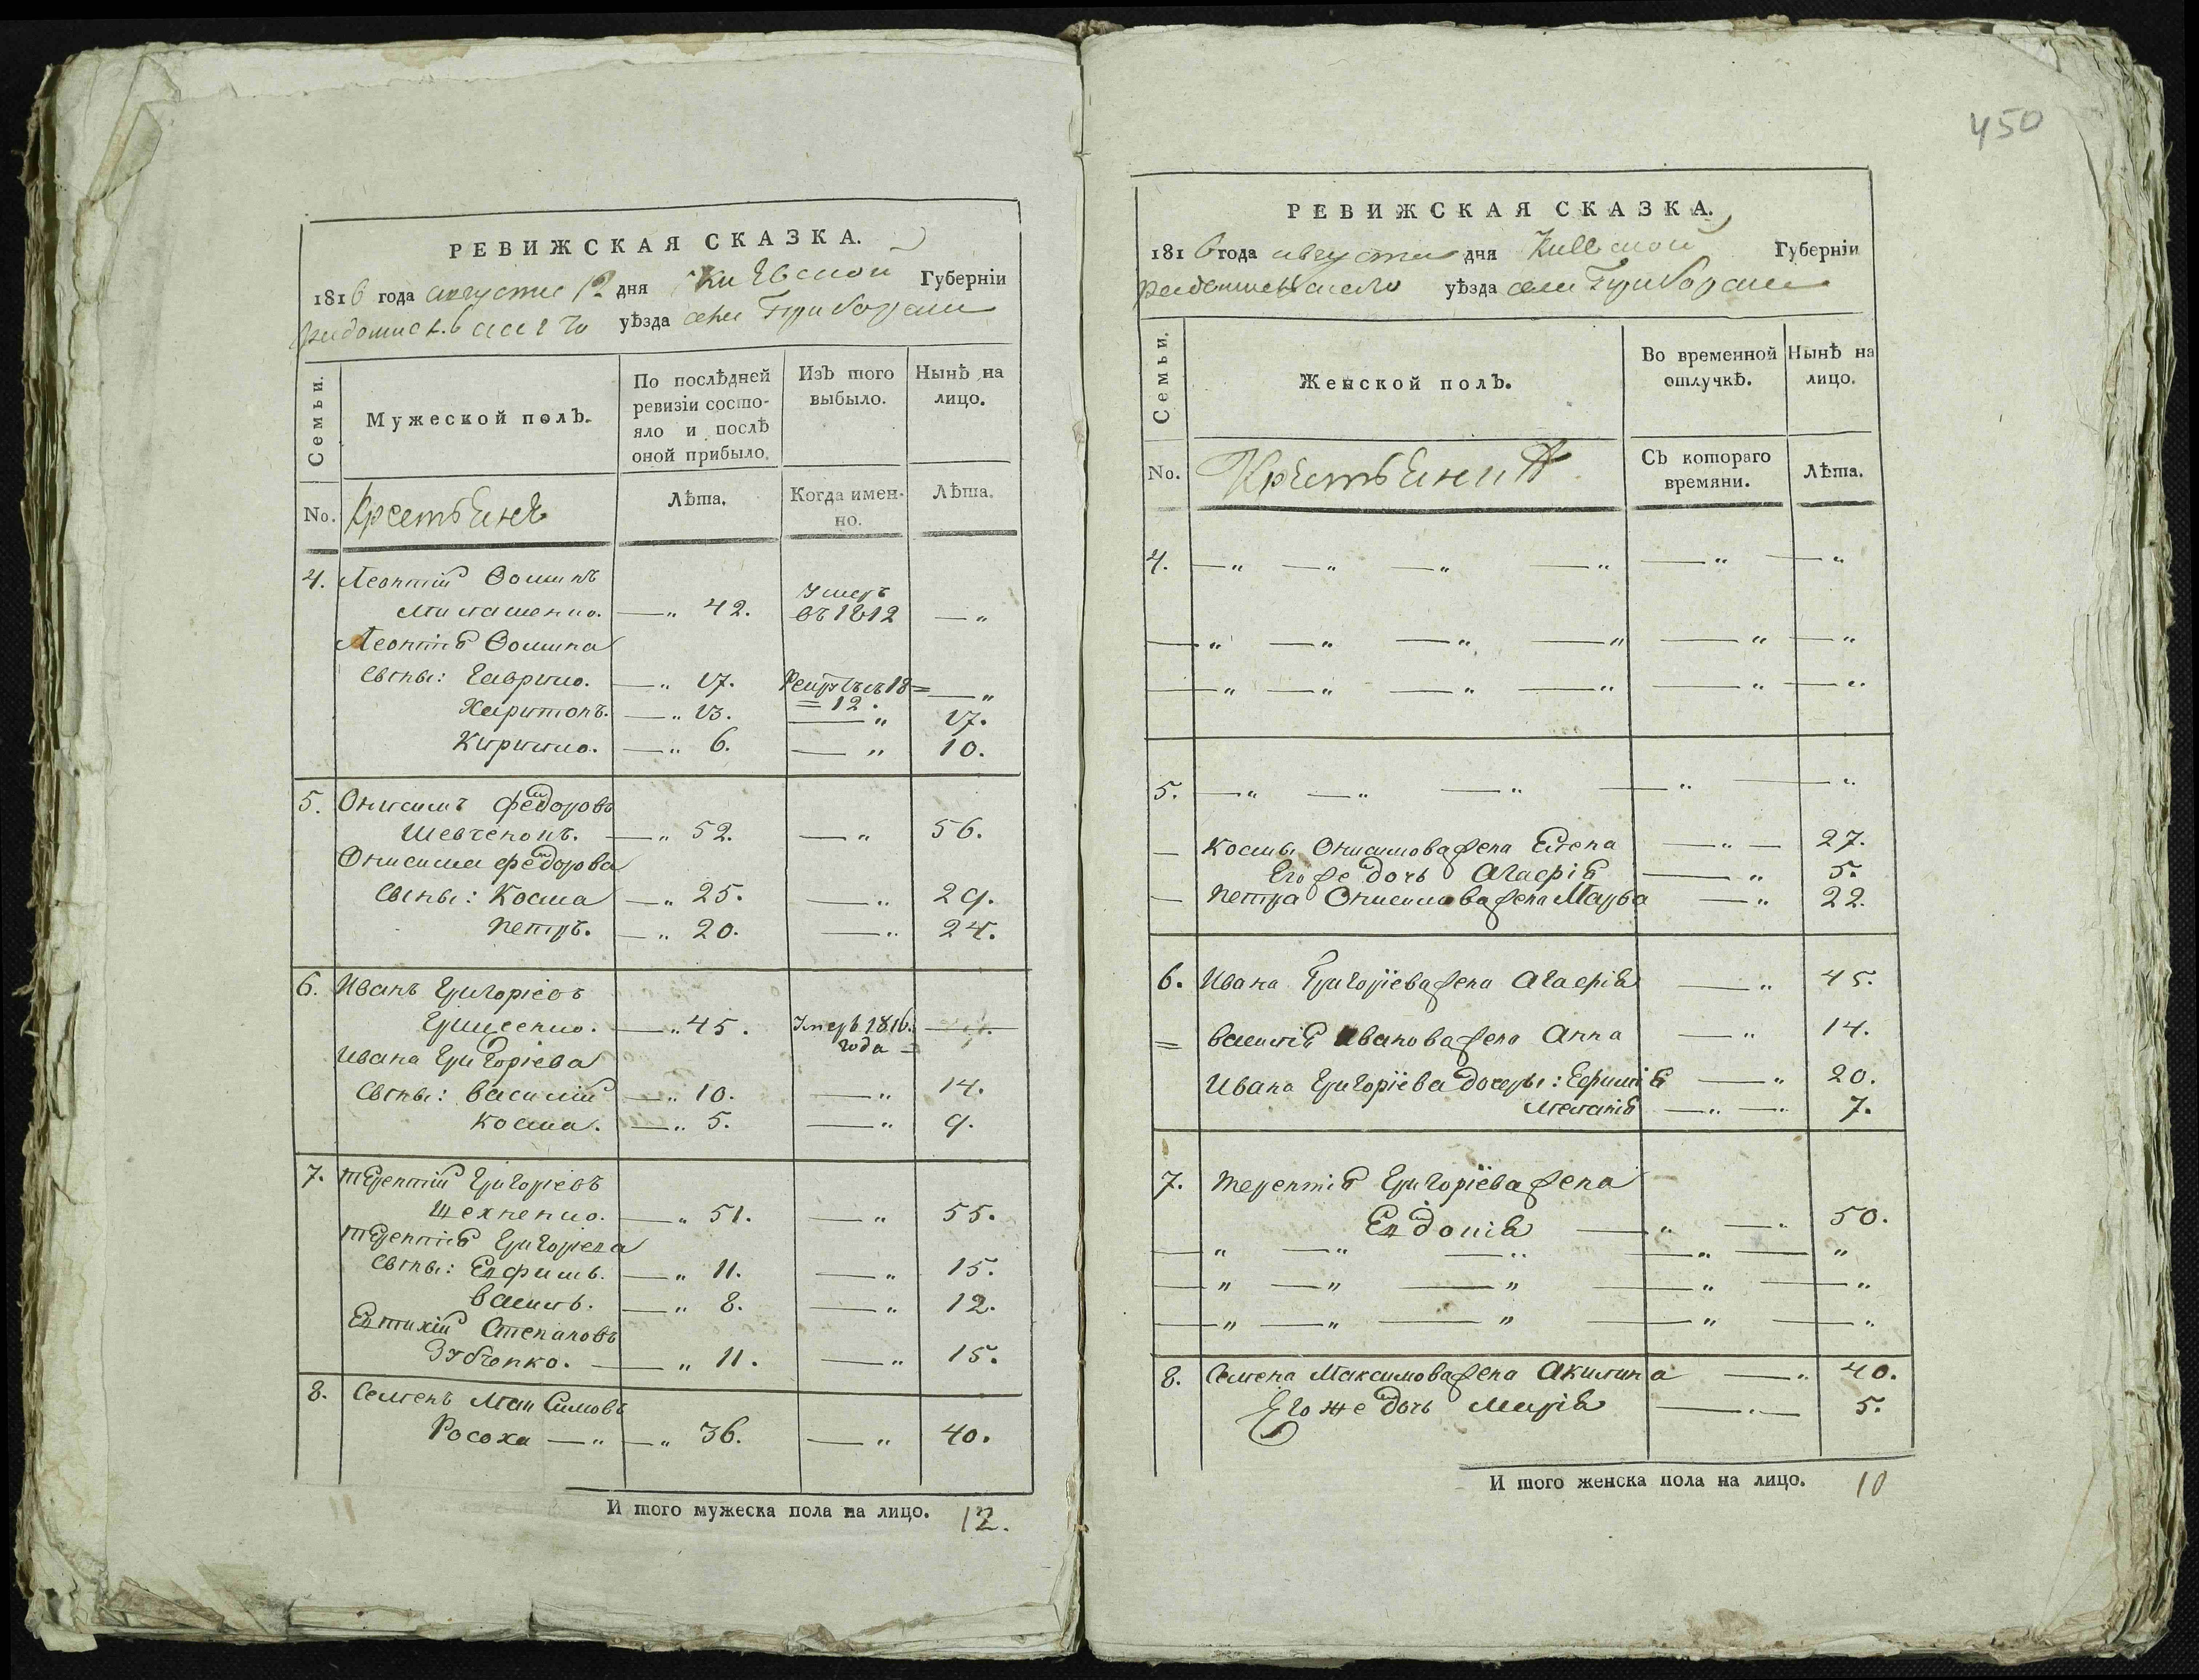 РЕВИЖСКАЯ СКАЗКА.
1816 года августа 12 дня Киевской Губерніи
Радомысльскаго уѣзда села Приборска
Семьи.
Мужеской полЪ.
По послѣдней ревизіи состояло и послѣ оной прибыло.
ИзЪ того выбыло.
Нынѣ на лицо.
No. Крестьянѣ
Лѣта.
Когда именно.
Лѣта.
4. Леонтій Ѳоминъ
Милашенко. —„ 42. Умеръ въ 1812 —„
Леонтія Ѳомина
Сыны: Гаврило. —„ 17. Рекрутъ съ 18= =12. —„
Харитонъ. —„ 13. —„ 17.
Кирило. —„ 6. —„ 10.
5. Онисимъ Федоровъ
Шевченокъ. —„ 52. —„ 56.
Онисима Федорова
Сыны: Косма —„ 25. —„ 29.
Петръ. —„ 20. —„ 24.
6. Иванъ Григоріевъ
Грищенко. —„ 45. Умеръ 1816. года —
Ивана Григоріева
Сыны: Василій —„ 10. —„ 14.
Косма. —„ 5. —„ 9.
7. Терентій Григоріевъ
—„ 51. —„ 55.
Терентія Григоріева
Сыны: Евфимъ. —„ 11. —„ 15.
Василь. —„ 8. —„ 12.
Евтихій Степановъ
Зубченко. —„ 11. —„ 15.
8. Семенъ Максимовъ
Росоха —„ —„ 36. —„ 40.
И того мужеска пола на лицо. 12.
11
450
РЕВИЖСКАЯ СКАЗКА.
1816 года августа дня Киевской Губерніи
Радомысльскаго уѣзда села Приборска
Семьи.
Женской полЪ.
Во временной отлучкѣ.
Нынѣ на лицо.
No. Крестьянки
СЪ котораго времяни.
Лѣта.
4. —„ —„ —„ —„ —„ —„
—„ —„ —„ —„ —„ —„
—„ —„ —„ —„ —„ —„
5. —„ —„ —„ —„ —„
— Космы Онисимова жена Елена —„— 27.
Его же дочь Агафія —„ 5.
— Петра Онисимова жена Марва —„ 22.
6. Ивана Григоріева жена Агафія —„ 45.
= Василія Иванова жена Анна —„ 14.
Ивана Григоріева дочеры: Ефимія —„ 20.
Меланія —„ —„ 7.
7. Терентія Григоріева жена
Евдокія —„ —„ 50.
—„ —„ —„ —„ —„
—„ —„ —„ —„ —„
—„ —„ —„ —„ —„
8. Семена Максимова жена Акилина —„ 40.
Его же дочь Марія —„— 5.
И того женска пола на лицо. 10